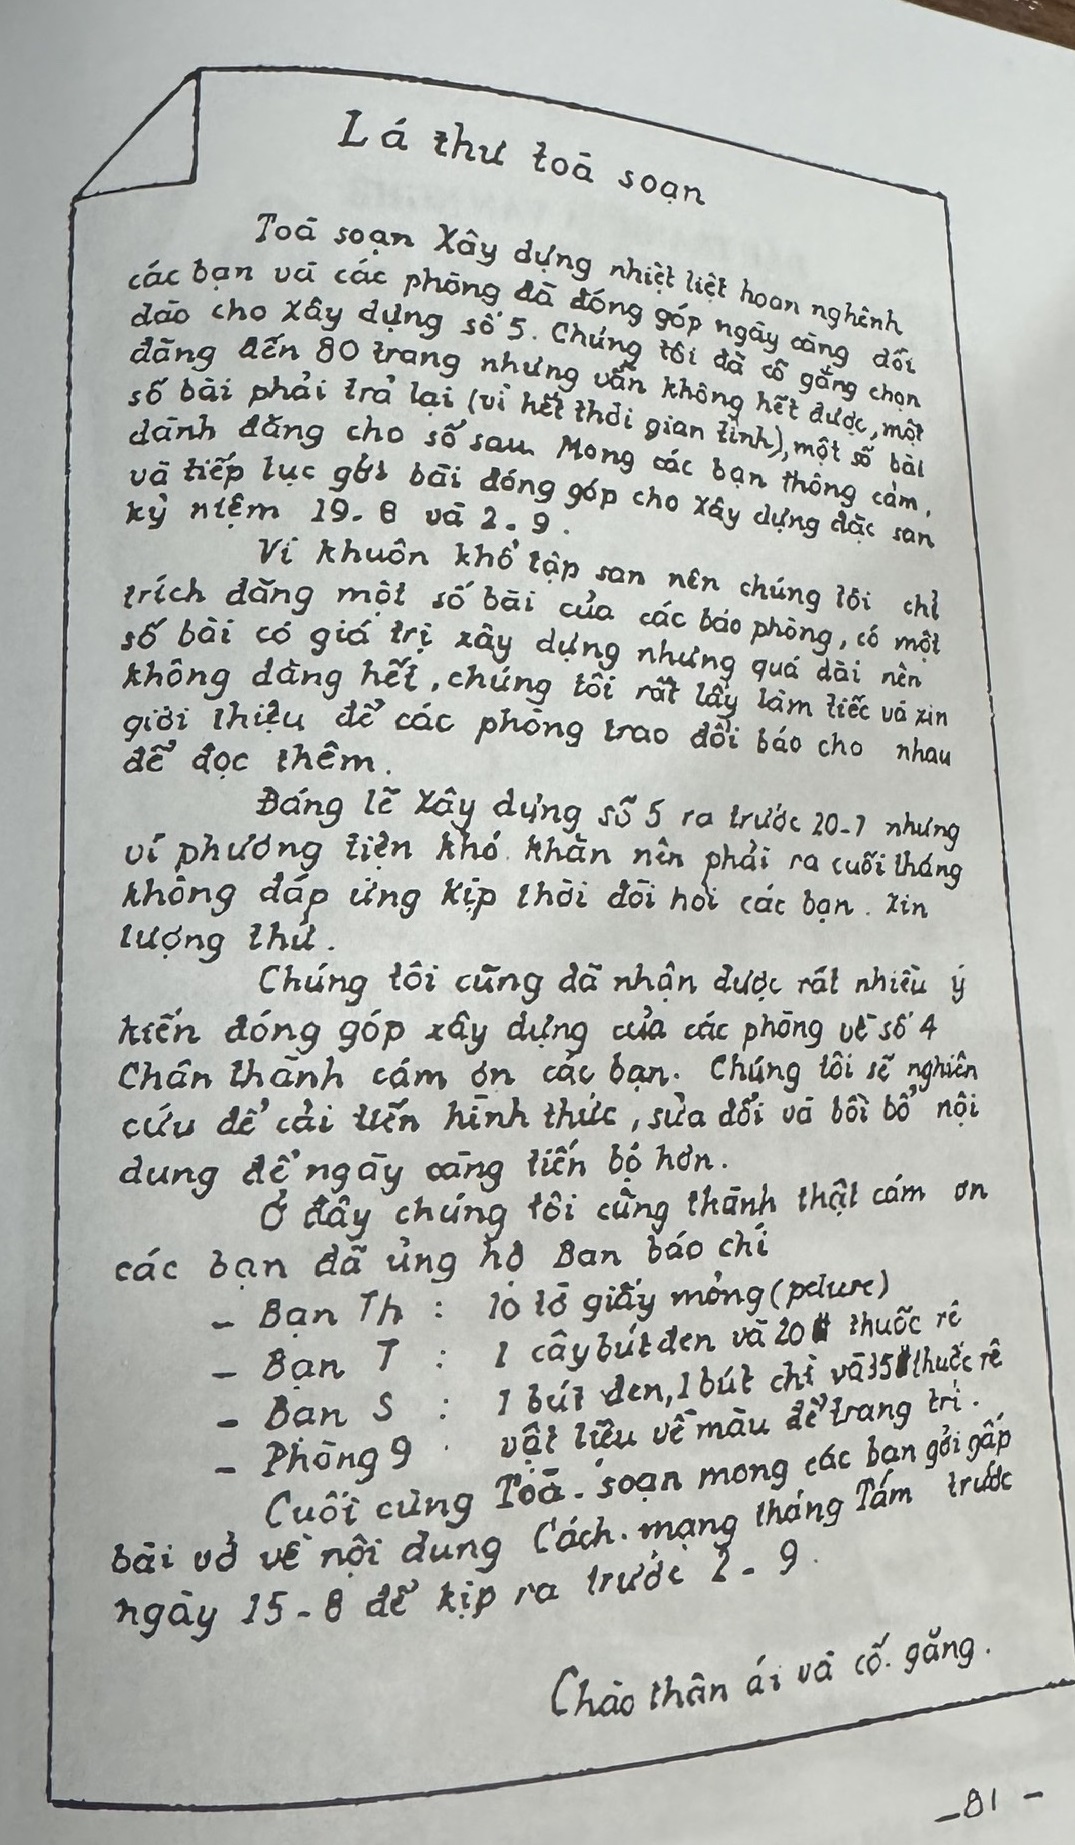 Lá thư toà soạn
Toà soạn Xây dựng nhiệt liệt hoan nghênh
các bạn và các phòng đã đóng góp ngày càng dồi
dào cho Xây dựng số 5. Chúng tôi đã cố gắng chọn
đăng đến 80 trang nhưng vẫn không hết được, một
số bài phải trả lại (vì hết thời gian tính), một số bài
dành đăng cho số sau. Mong các bạn thông cảm,
và tiếp tục gởi bài đóng góp cho Xây dựng đặc san
kỷ niệm 19.8 và 2.9.
Vì khuôn khổ tập san nên chúng tôi chỉ
trích đăng một số bài của các báo phòng, có một
số bài có giá trị xây dựng nhưng quá dài nên
không đăng hết, chúng tôi rất lấy làm tiếc và xin
giới thiệu để các phòng trao đổi báo cho nhau
để đọc thêm.
Đáng lẽ Xây dựng số 5 ra trước 20-7 nhưng
vì phương tiện khó khăn nên phải ra cuối tháng
không đáp ứng kịp thời đòi hỏi các bạn. Xin
lượng thứ.
Chúng tôi cũng đã nhận được rất nhiều ý
kiến đóng góp xây dựng của các phòng về số 4
Chân thành cám ơn các bạn. Chúng tôi sẽ nghiên
cứu để cải tiến hình thức, sửa đổi và bồi bổ nội
dung để ngày càng tiến bộ hơn.
Ở đây chúng tôi cũng thành thật cám ơn
các bạn đã ủng hộ Ban báo chí
- Bạn Th : 10 tờ giấy mỏng (pelure)
- Bạn T : 1 cây bút đen và 20đ thuốc rê
- Bạn S : 1 bút đen, 1 bút chì và 35đ thuốc rê
- Phòng 9 : vật liệu vẽ màu để trang trí.
Cuối cùng Toà soạn mong các bạn gởi gấp
bài vở về nội dung Cách mạng tháng Tám trước
ngày 15-8 để kịp ra trước 2-9.
Chào thân ái và cố gắng.
-81-